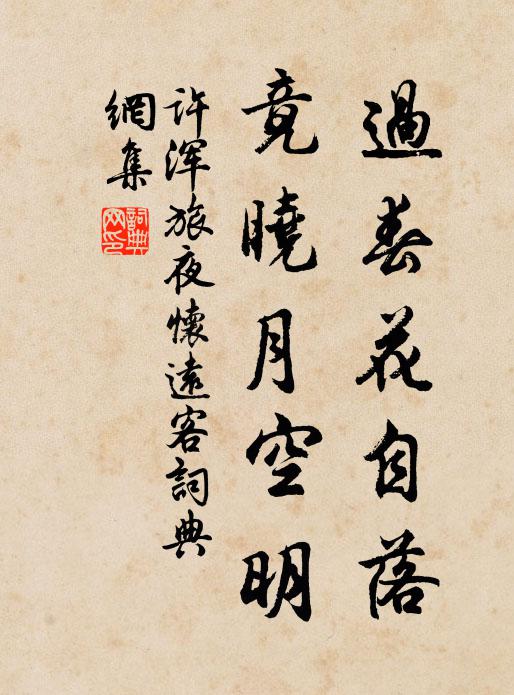 過春花自落
竟曉月空明
許渾旅夜懷遠客詞典
網集
詞典
网印